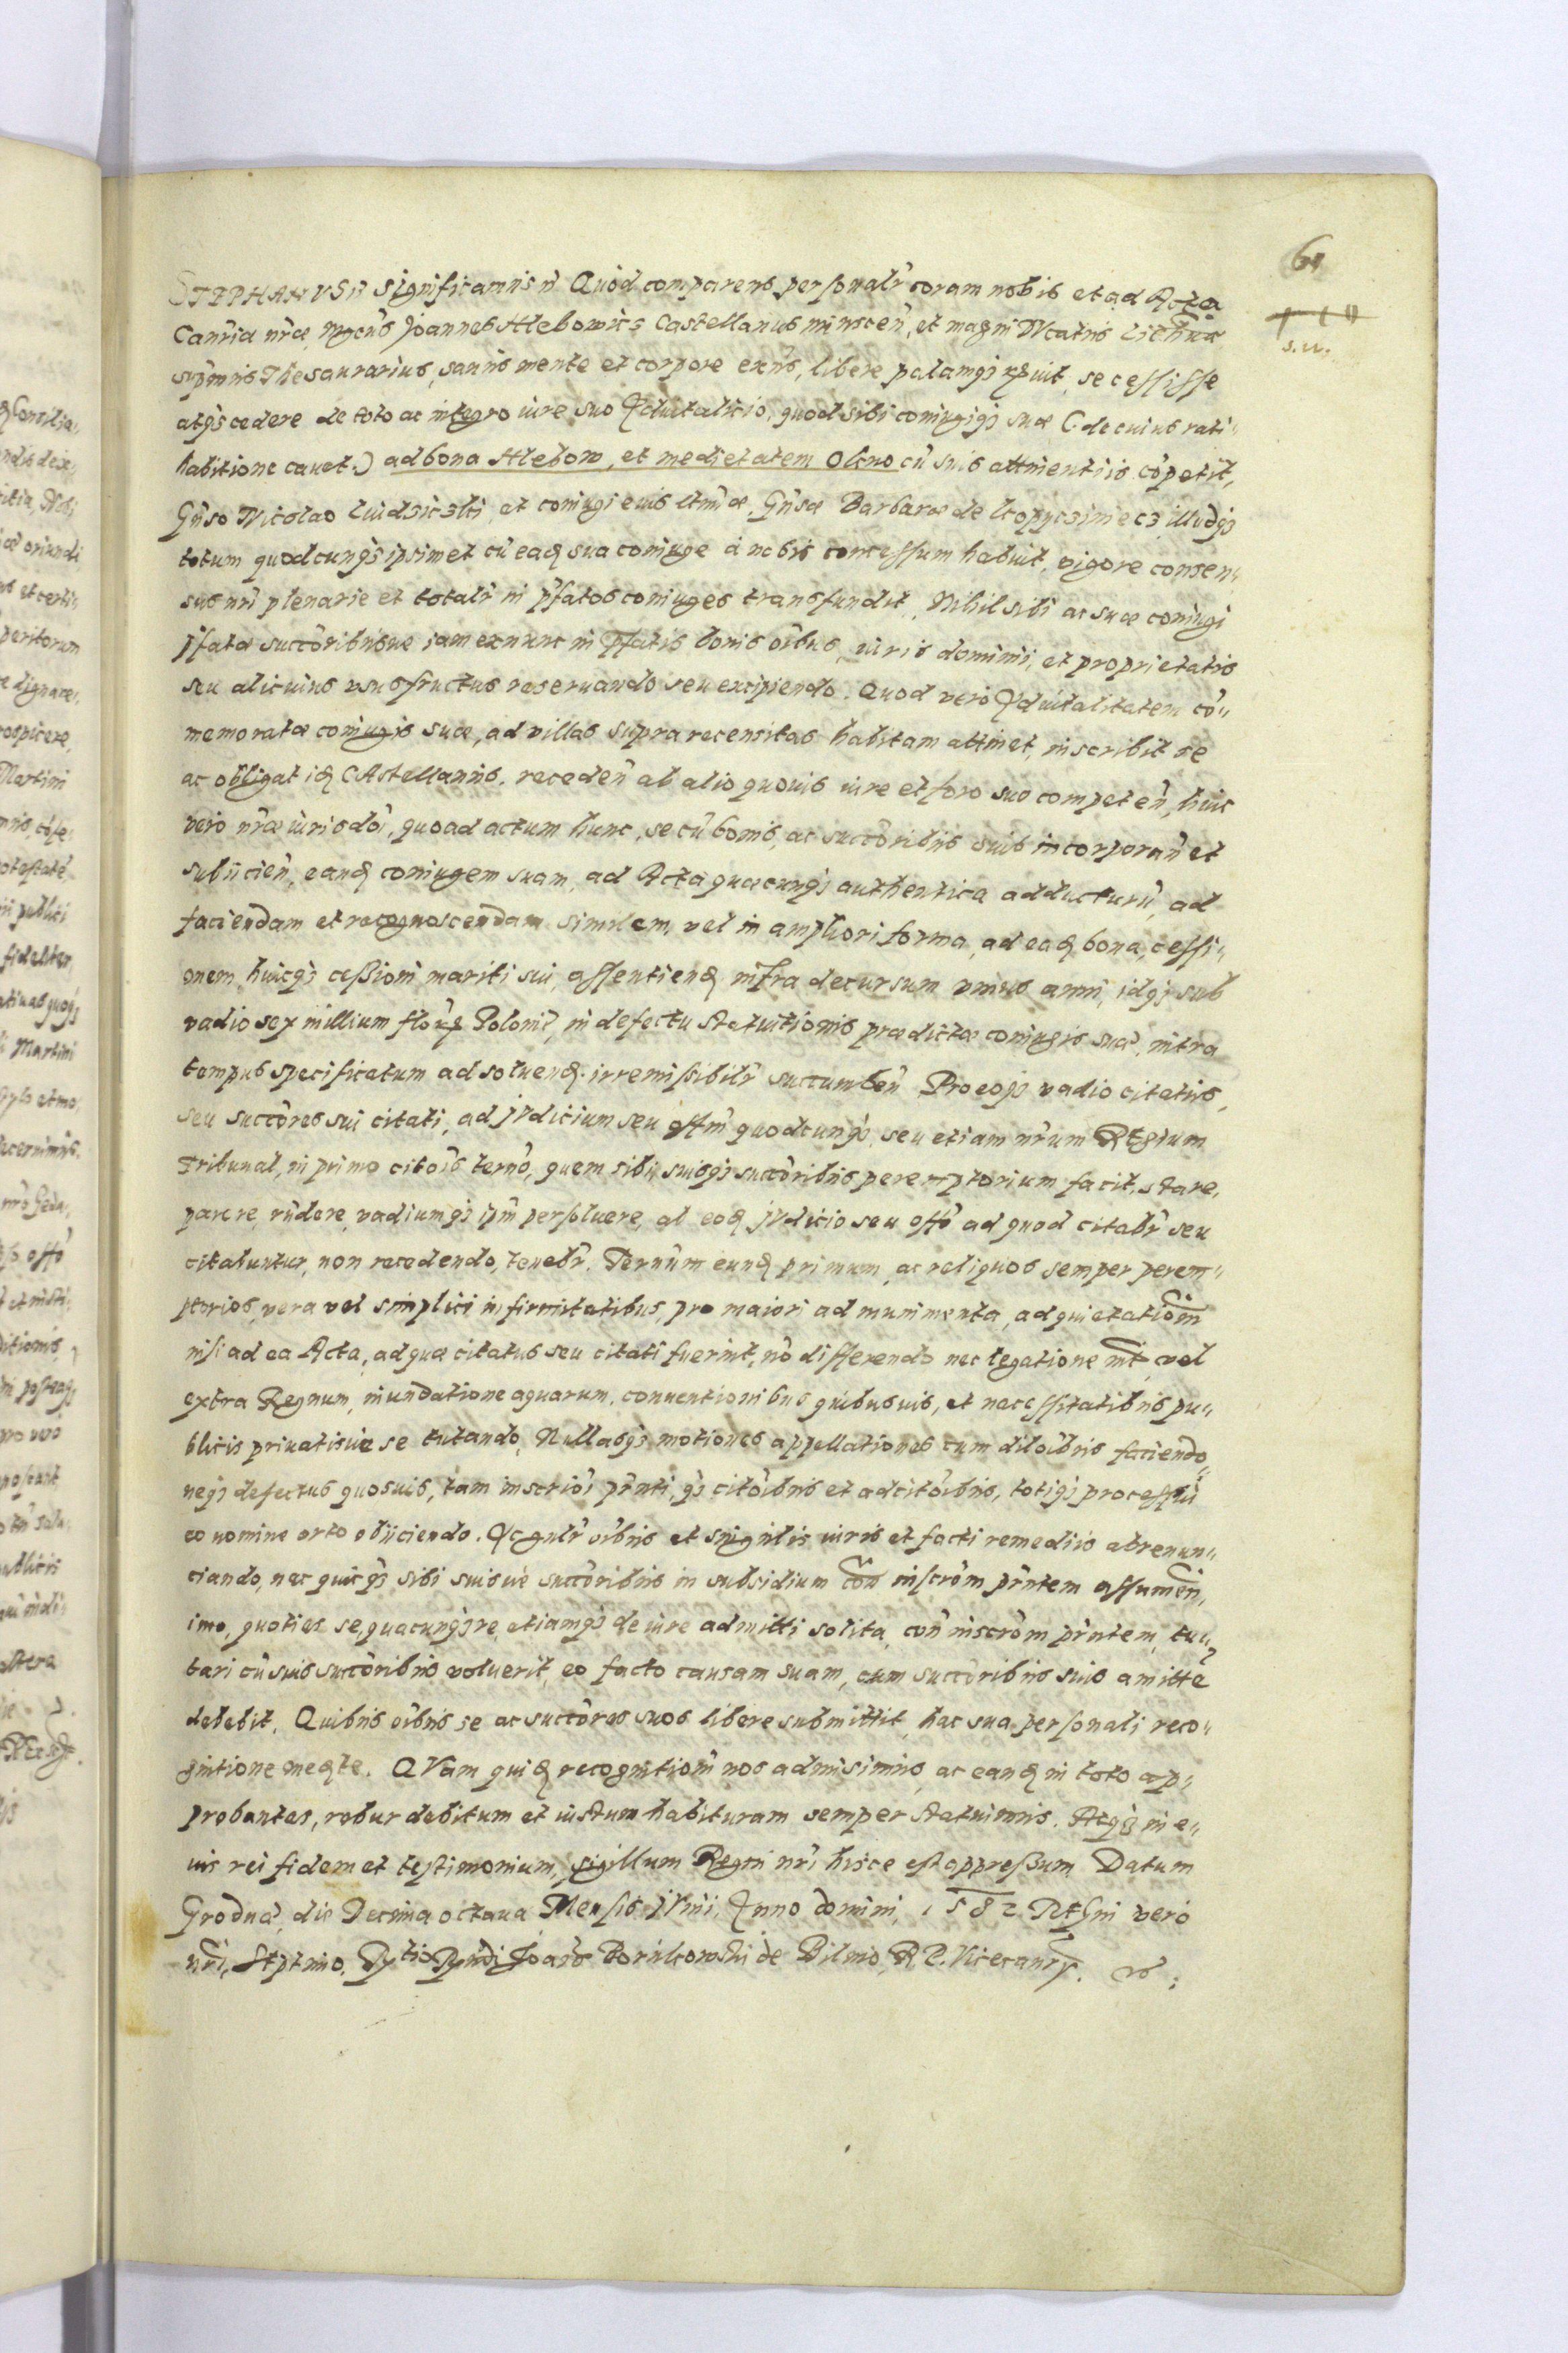 61
s.w.
STEPHANVS etc Significamus etc Quod comparens personalr̃ coram nobis et ad Acta
Canr̃iæ nr̃æ, Mgcus Joannes Hlebowicz Castellanus minscen̄, et magni Ducatus Lithuæ
supr̃mus Thesaurarius, sanus mente et corpore exñs, libere palamq; r̃uit, se cessisse
atq; cedere de toto ac integro iure suo Aduitalitio, quod sibi coniugiq; suæ (de cuius rati-
habitione cauet.) ad bona Hlebow, et medietatem Olano cū suis attinentiis cōpetit,
Gñso Nicolao et coniugi eius ltmæ, Gñsæ Barbaræ de illudq;
totum quodcunq; ipsimet cū eadq sua coniuge à nobis concessum habuit, vigore consen-
sus nr̃i plenarie et totalr̃ in p̃fatos coniuges transfundit, Nihil sibi ac suæ coniugi
p̃fatæ succōribusue iam ex nunc in p̃fatis bonis oībus, iuris dominii, et proprietatis
seu alicuius vsusfructus reseruando seu excipiendo. Quod verò Aduitalitatem cō-
memoratæ coniugis suæ, ad villas supra recensitas habitam attinet, inscribit se
ac obligat idq Castellanus, receden̄ ab alio quouis iure et foro suo competen̄, huic
verò nr̃æ iurisdōi, quoad actum hunc, se cū bonis, ac succōribus suis incorporan̄ et
subiicien̄, eandq coniugem suam, ad Acta quæcunq; authentica adducturū, ad
faciendam et recognoscendam similem, vel in ampliori forma, ad eadq bona, cessi-
onem, huicq; cessioni mariti sui, assentiendq infra decursum vnius anni, idq; sub
vadio sex millium flor̃ Polonic̃, in defectu statuitionis prædictæ coniugis suæ, intra
tempus specificatum ad soluendq. irremissibilr̃ succumben̄ Pro eoq; vadio citatus,
seu succōres sui citati, ad Judicium seu offm̃ quodcunq;, seu etiam nr̃um Regium
Tribunal, in primo citōis termō, quem sibi, suisq; succōribus peremptorium facit, stare,
parere, rñdere, vadiumq; ipm̄ persoluere, ab eodq Judicio seu offō ad quod citabr̃ seu
citabuntur, non recedendo, tenebr̃. Termn̄um eundq primum, ac reliquos semper perem-
ptorios, vera vel simplici infirmitatibus, pro maiori ad munimenta, ad quietatiōm
nisi ad ea Acta, ad quæ citatus seu citati fuerint, nō differendo nec legatione int̃, vel
extra Regnum, inundatione aquarum, conuentionibus quibusuis, et necessitatibus pu-
blicis priuatisuè se tutando, Nullasq; motiones appellationes cum dilōibus faciendo,
neq; defectus quosuis, tam inscriōi pr̃nti, q; citōibus et adcitōibus, totiq; processui
eo nomine orto obiiciendo. Acgnlr̃ oībus et singulis iuris et facti remediis abrenun-
ciando, nec quicq; sibi suisuè succōribus in subsidium con̄ inscrōm pr̃ntem assumen̄,
imo, quoties se, quacunq; re, etiamq; de iure admitti solita, con̄ inscrōm pr̃ntem, tu-
tari cū suis succōribus voluerit, eo facto causam suam, cum succōribus suis amitte
debebit. Quibus oībus se ac succōres suos libere submittit, hac sua personali reco-
gnitione medqte. QVam quidq recognitiōm nos admisimus, ac eandq in toto ap-
probantes, robur debitum et iustum habituram semper statuimus. Atq; in e-
ius rei fidem et testimonium, sigillum Regni nr̃i hisce est appressum Datum
Grodnæ, die Decima octaua Mensis Junii, Anno domini, 1582 Regni verò
nr̃i, Septimo. de Bilino, R P. Vicecancr̃.